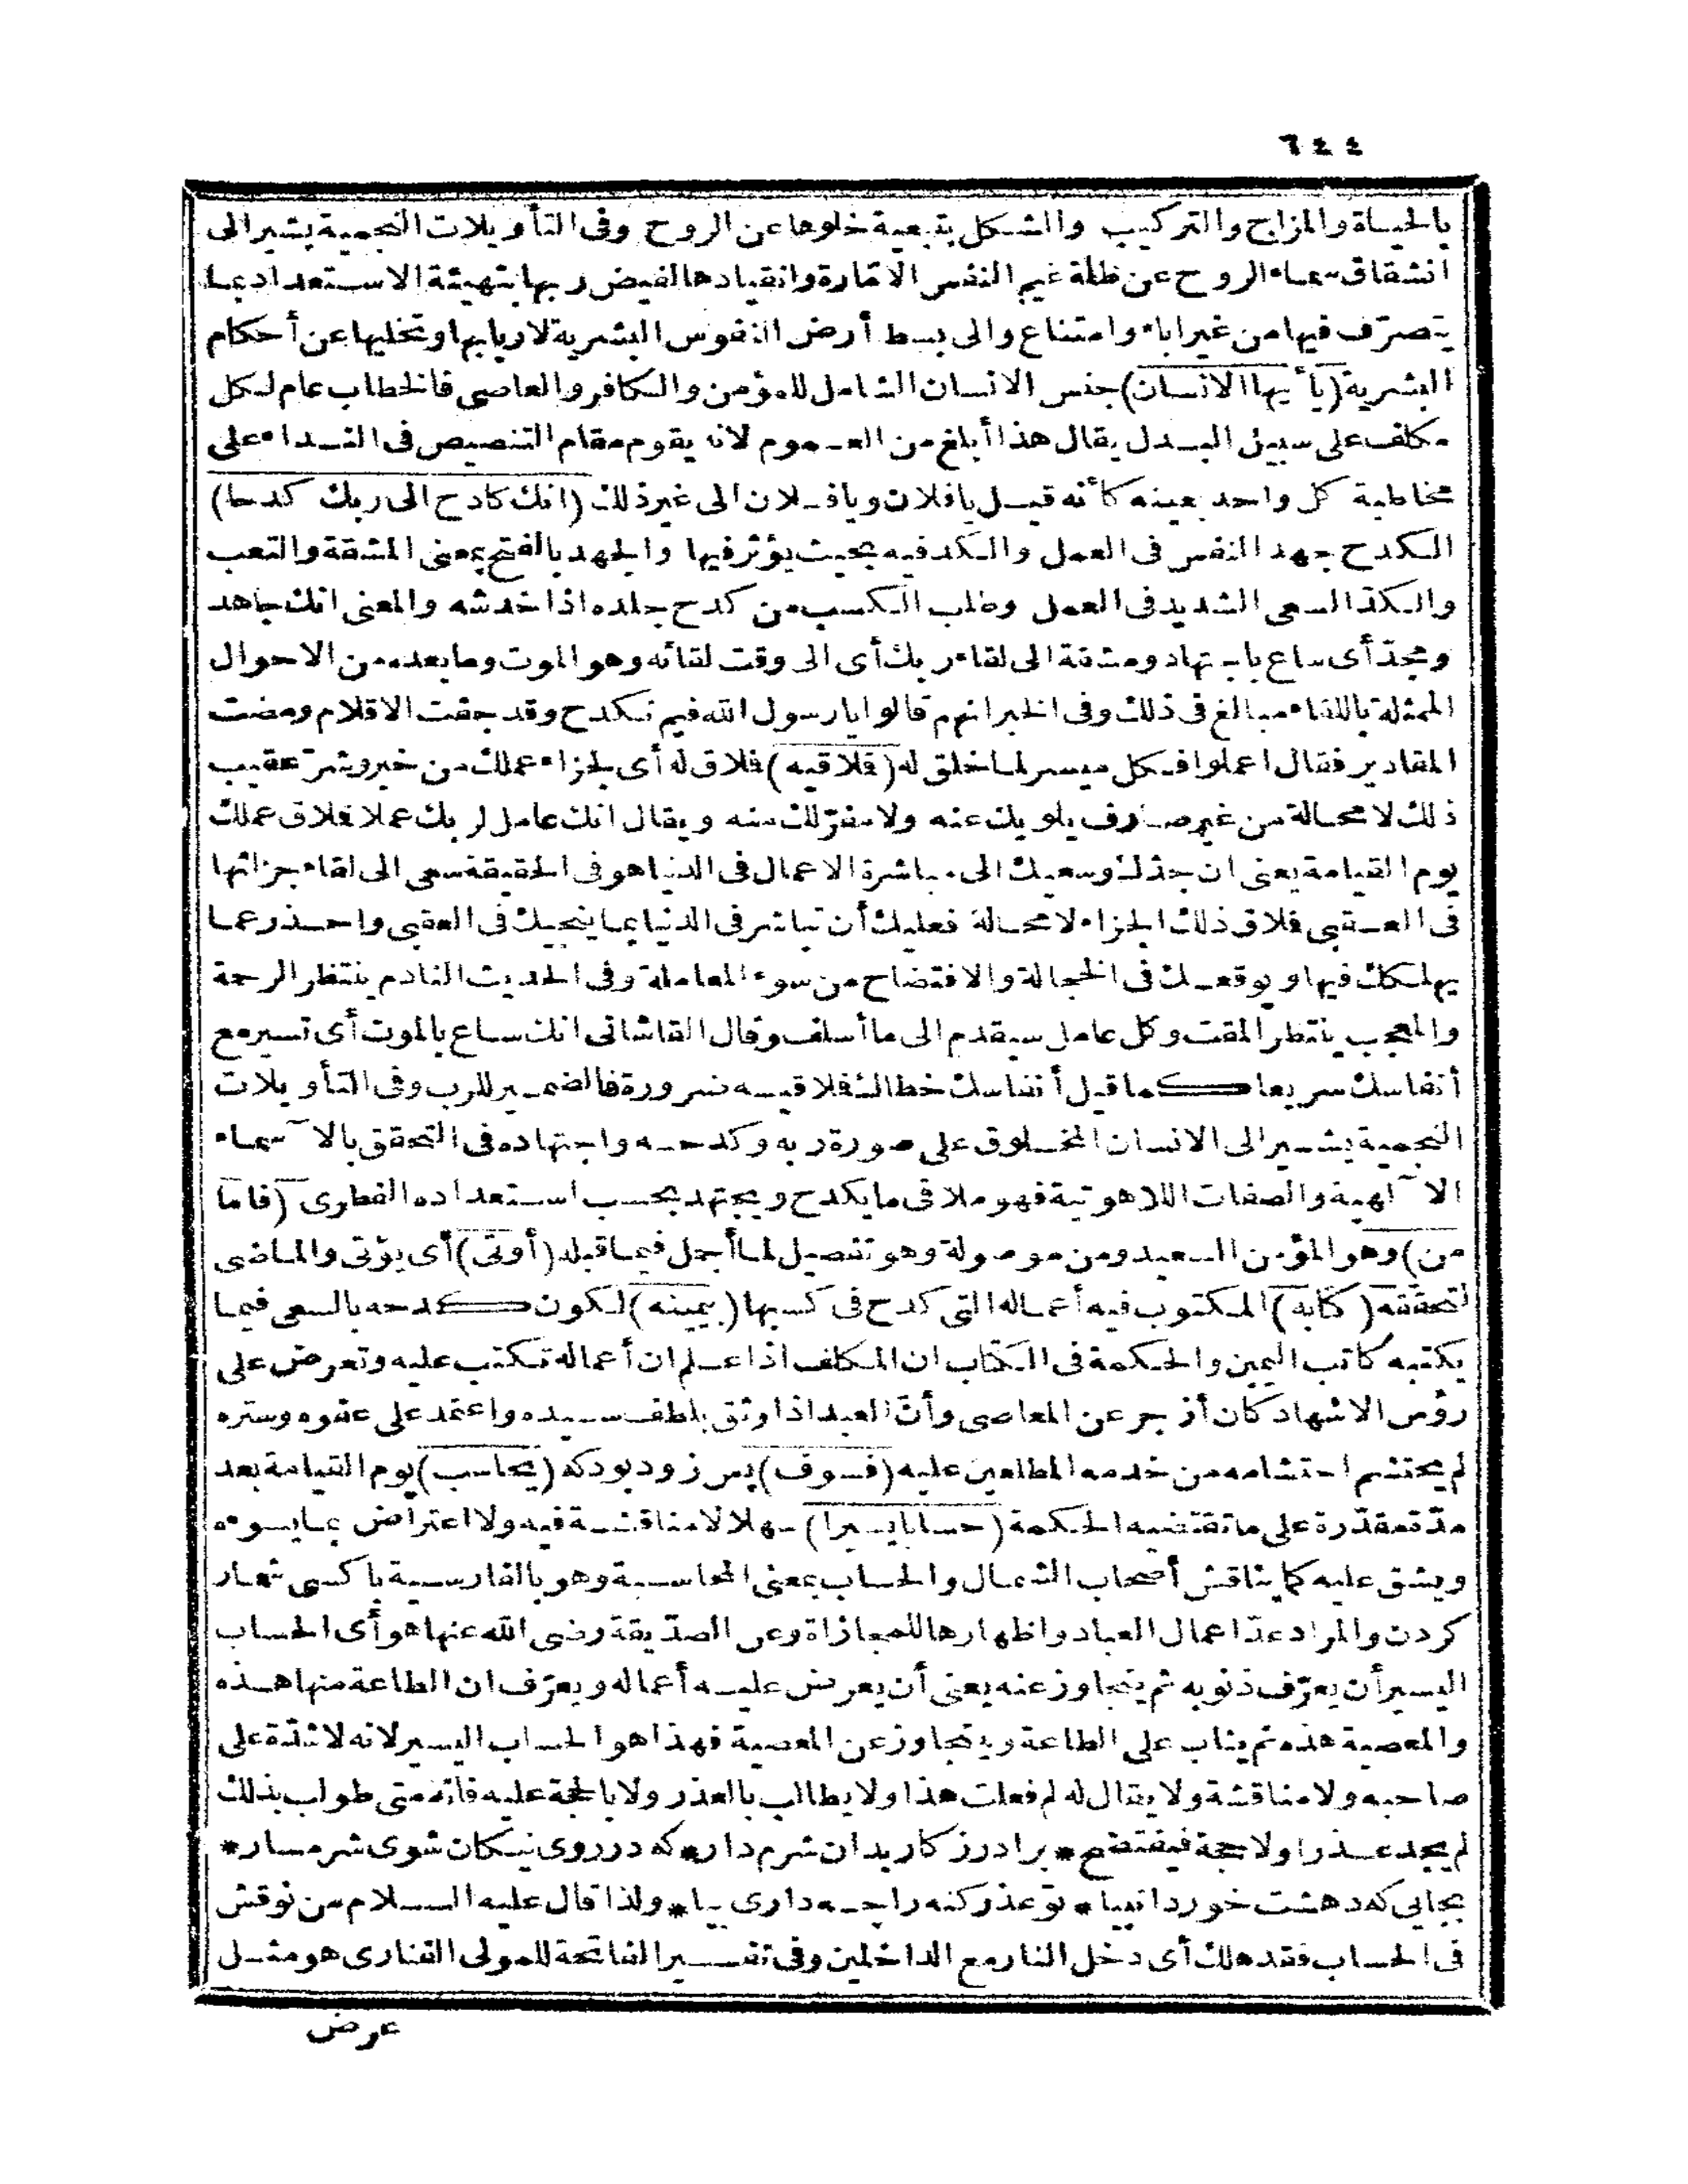 ٦٤٤
بالحياة والمزاج والتركيب والشكل بتبعية خلوها عن الروح وفى التأويلات النجمية يشير الى
انشقاق سماء الروح عن ظلمة غيم النفس الامّارة وانقيادها لفيض ربها بتهيئة الاستعداد بما
يتصرّف فيها من غير اباء وامتناع والى بسط أرض النفوس البشرية لاربابها وتخليها عن أحكام
البشرية (ياأيها الانسان) جنس الانسان الشامل للمؤمن والكافر والعاصى فالخطاب عام لكل
مكلف على سبيل البدل يقال هذا أبلغ من العموم لانه يقوم مقام التنصيص فى النداء على
مخاطبة كل واحد بعينه كأنه قيل يافلان ويافلان الى غير ذلك (انك كادح الى ربك كدحا)
الكدح جهد النفس فى العمل والكد فيه بحيث يؤثر فيها والجهد بالفتح بمعنى المشقة والتعب
والكدّ السعى الشديد فى العمل وطلب الكسب من كدح جلده اذا خدشه والمعنى انك جاهد
ومجدّ أى ساع باجتهاد ومشقة الى لقاء ربك أى الى وقت لقائه وهو الموت وما بعده من الاحوال
الممثلة باللقاء مبالغ فى ذلك وفى الخبر انهم قالوا يارسول الله فيم نكدح وقد جفت الاقلام ومضت
المقادير فقال اعملوا فكل ميسر لما خلق له (فلاقيه) فلاق له أى لجزاء عملك من خير وشرّ عقيب
ذلك لا محالة من غير صارف يلويك عنه ولا مفرّ لك منه ويقال انك عامل لربك عملا فلاق عملك
يوم القيامة يعنى ان جدّك وسعيك الى مباشرة الاعمال فى الدنيا هو فى الحقيقة سعى الى لقاء جزائها
فى العقبى فلاق ذلك الجزاء لا محالة فعليك أن تباشر فى الدنيا بما ينجيك فى العقبى واحذر عما
يهلكك فيها ويوقعك فى الخجالة والافتضاح من سوء المعاملة وفى الحديث النادم ينتظر الرحمة
والمعجب ينتظر المقت وكل عامل سيقدم الى ما أسلف وقال القاشانى انك ساع بالموت أى تسير مع
أنفاسك سريعا كما قيل أنفاسك خطاك فلاقيه ضرورة فالضمير للرب وفى التأويلات
النجمية يشير الى الانسان المخلوق على صورة ربه وكدحه واجتهاده فى التحقق بالاسماء
الالهية والصفات اللاهوتية فهو ملاقى ما يكدح ويجتهد بحسب استعداده الفطرى (فامّا
من) وهو المؤمن السعيد ومن موصولة وهو تفصيل لما أجمل فيما قبله (أوتى) أى يؤتى والماضى
لتحققه (كتابه) المكتوب فيه أعماله التى كدح فى كسبها (بيمينه) لكون كدحه بالسعى فيما
يكتبه كاتب اليمين والحكمة فى الكتاب ان المكلف اذا علم ان أعماله تكتب عليه وتعرض على
رؤس الاشهاد كان أزجر عن المعاصى وأنّ العبد اذا وثق بلطف سيده واعتمد على عفوه وستره
لم يحتشم احتشامه من خدمه المطلعين عليه (فسوف) پس زود بود كه (يحاسب) يوم القيامة بعد
مدّة مقدّرة على ما تقتضيه الحكمة (حسابا يسيرا) سهلا لا مناقشة فيه ولا اعتراض بما يسوءه
ويشق عليه كما يناقش أصحاب الشمال والحساب بمعنى المحاسبة وهو بالفارسية با كسى شمار
كردن والمراد عدّ اعمال العباد واظهارها للمجازاة وعن الصدّيقة رضى الله عنها هو أى الحساب
اليسير أن يعرّف ذنوبه ثم يتجاوز عنه يعنى أن يعرض عليه أعماله ويعرّف ان الطاعة منها هذه
والمعصية هذه ثم يثاب على الطاعة ويتجاوز عن المعصية فهذا هو الحساب اليسير لانه لا شدّة على
صاحبه ولا مناقشة ولا يقال له لم فعلت هذا ولا يطالب بالعذر ولا بالحجة عليه فانه متى طولب بذلك
لم يجد عذرا ولا حجة فيفتضح * برادر ز كار بدان شرم دار * كه در روى نيكان شوى شرمسار *
بجايى كه دهشت خورد انبيا * تو عذر كنه را چه دارى بيا * ولذا قال عليه السلام من نوقش
فى الحساب فقد هلك أى دخل النار مع الداخلين وفى تفسير الفاتحة للمولى الفنارى هو مثل
عرض